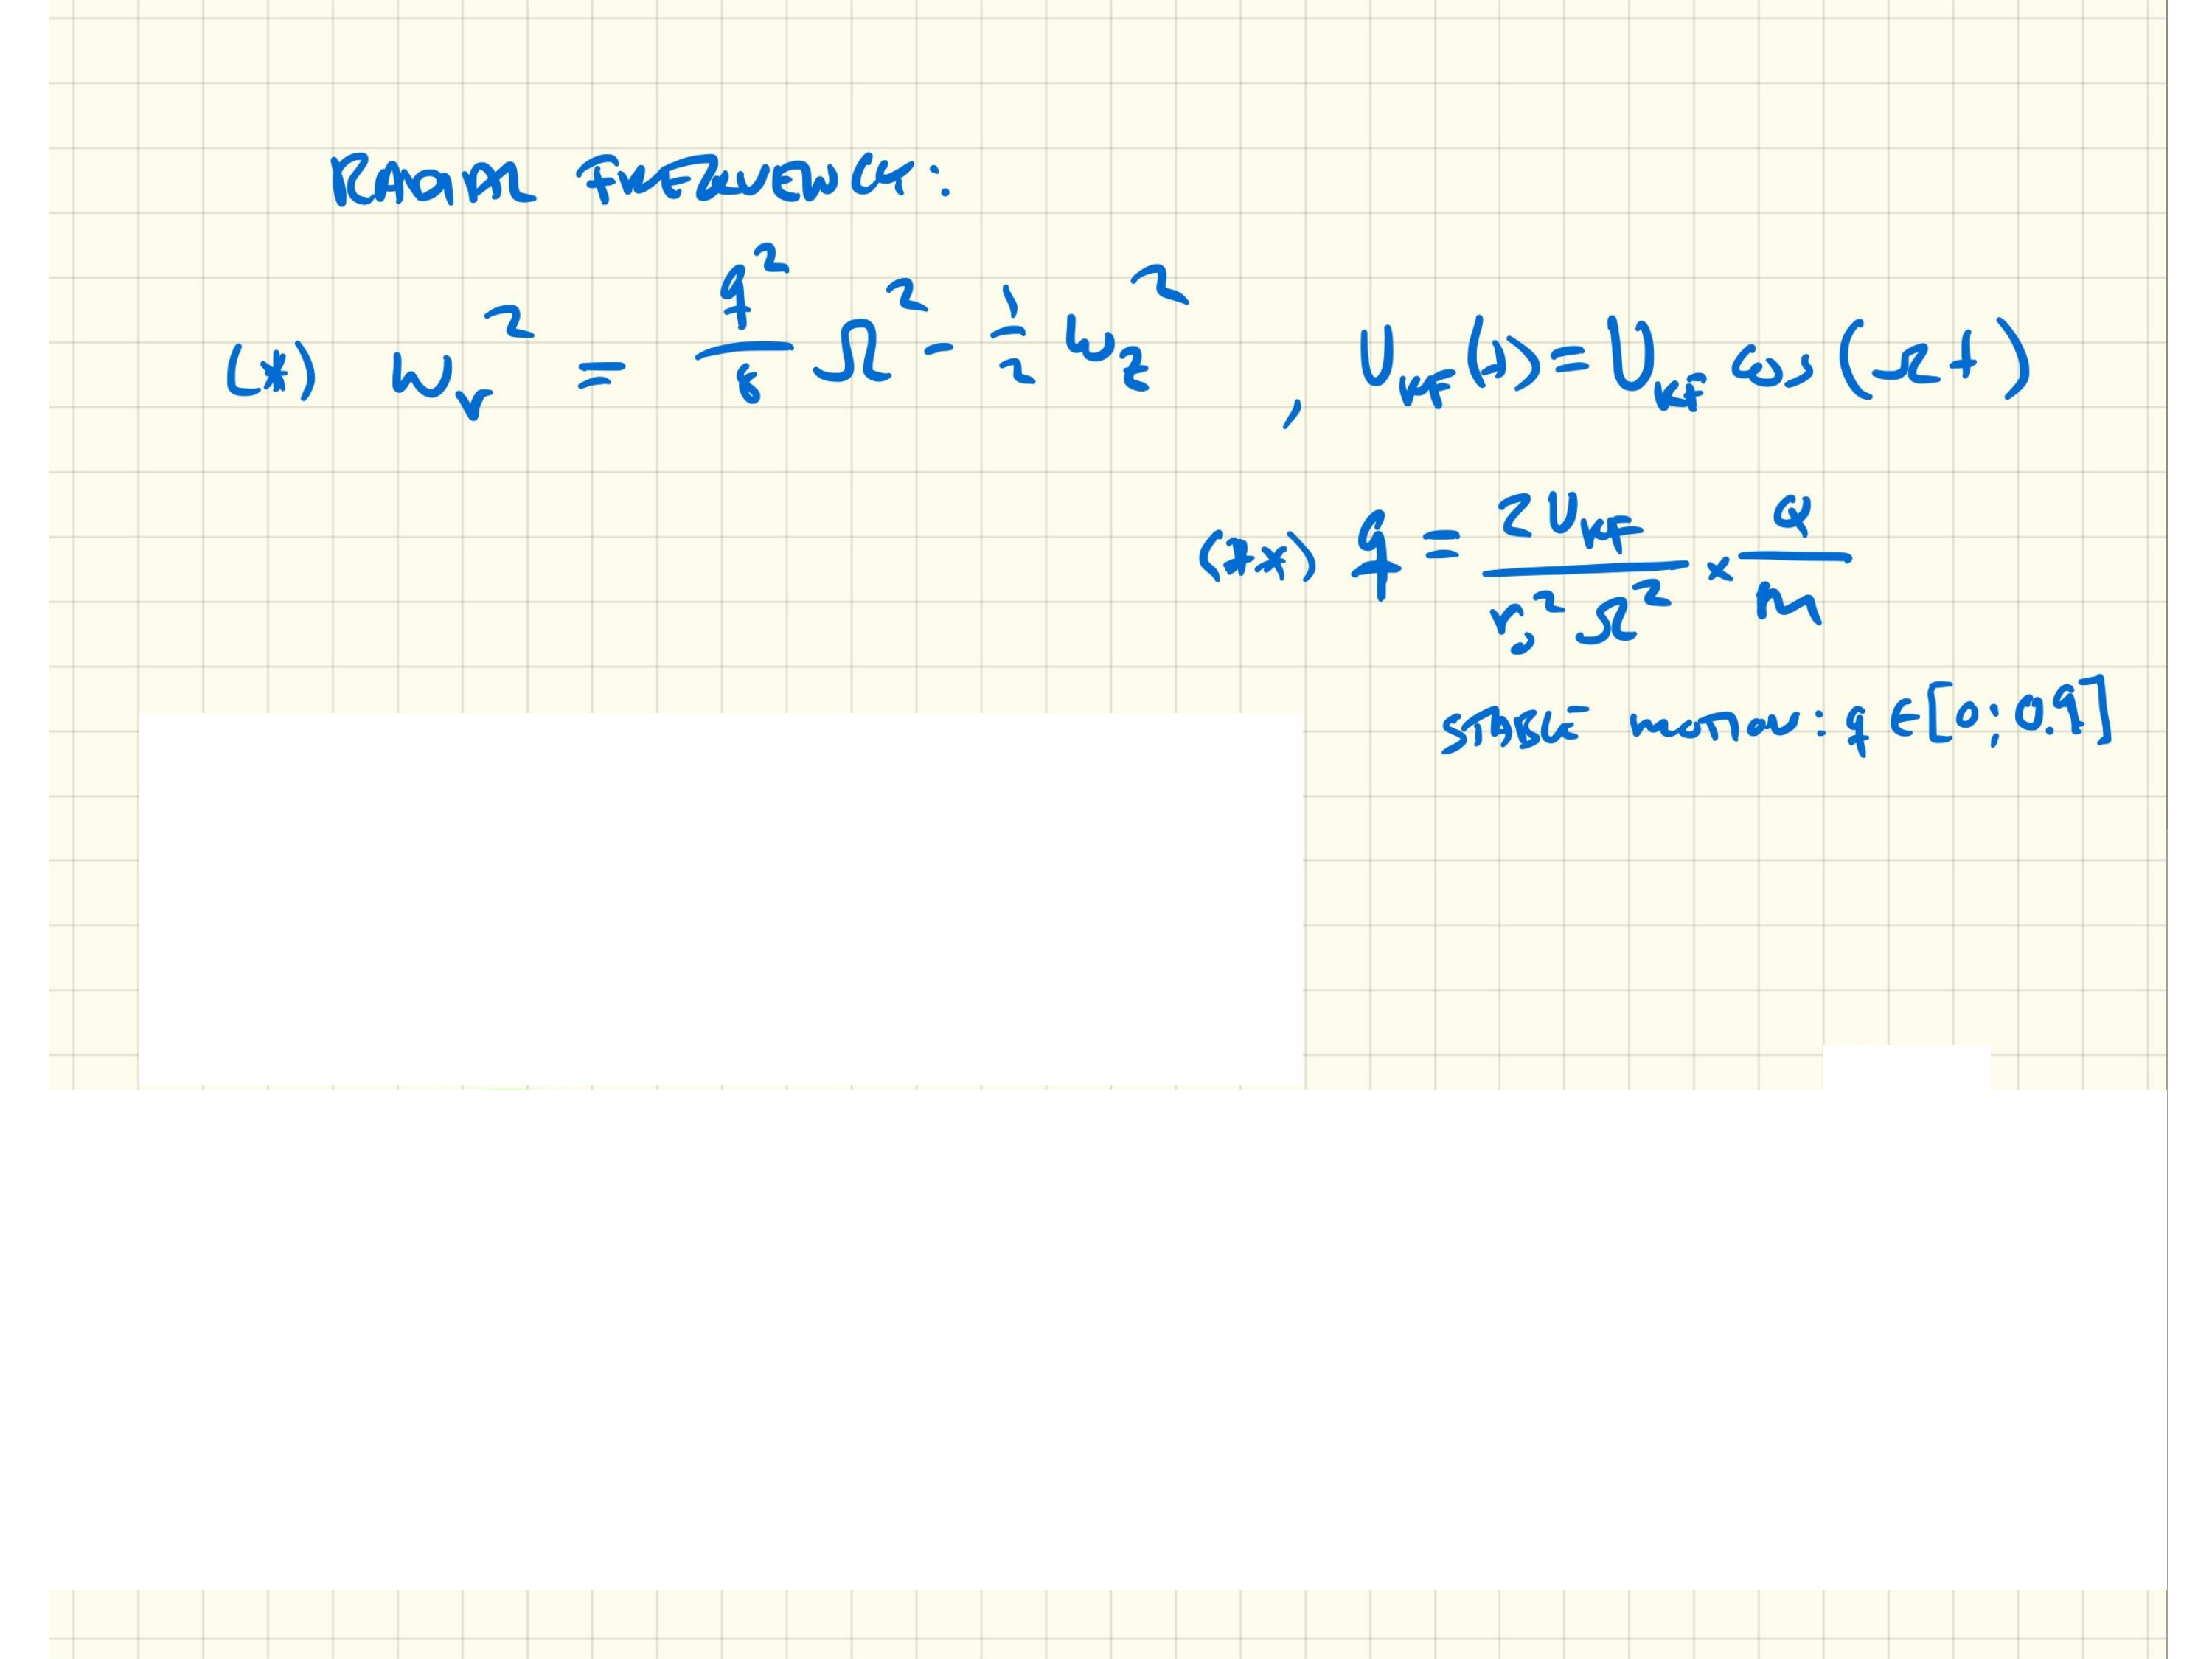 RADIAL FREQUENCY:
(*) ω_r² = q²/8 Ω² - 1/2 ω_z² , U_RF(t) = U_RF cos(Ωt)
(**) q = 2U_RF / r₀²Ω² × Q/m
STABLE MOTION: q ∈ [0; 0.9]